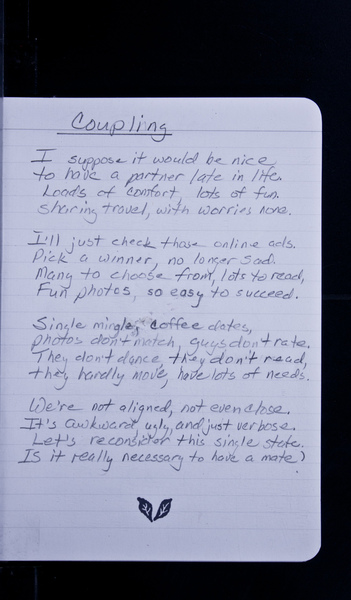 Coupling
I suppose it would be nice
to have a partner late in life.
Loads of comfort, lots of fun.
Sharing travel, with worries none.
I'll just check those online ads.
Pick a winner, no longer sad.
Many to choose from, lots to read,
Fun photos, so easy to succeed.
Single mingle, coffee dates,
photos don't match, guys don't rate.
They don't dance, they don't read,
they hardly move, have lots of needs.
We're not aligned, not even close.
It's awkward, ugly, and just verbose.
Let's reconsider this single state.
Is it really necessary to have a mate?